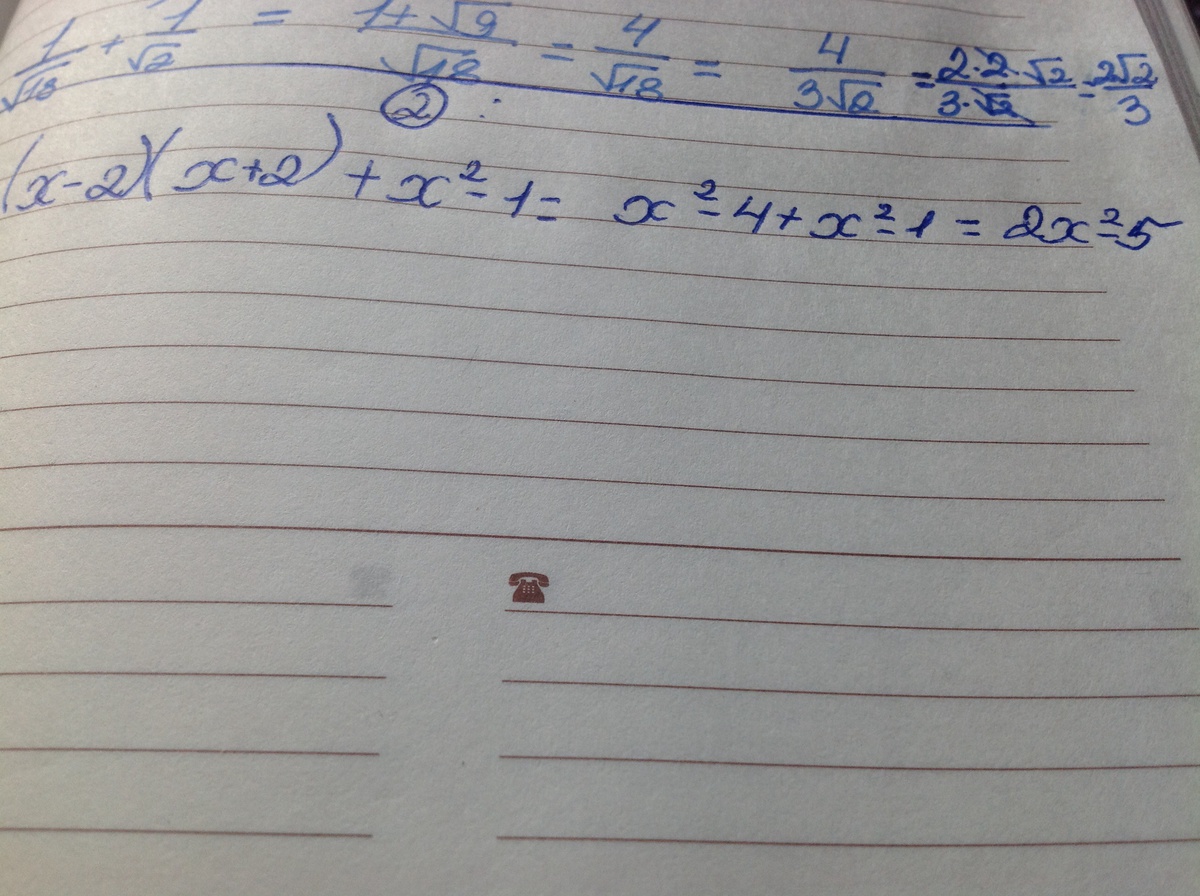 1/√18 + 1/√2 = 1+√9/√18 = 4/√18 = 4/3√2 = 2·2·√2/3·√2 = 2√2/3
② :
(x-2)(x+2)+x²-1= x²-4+x²-1=2x²-5